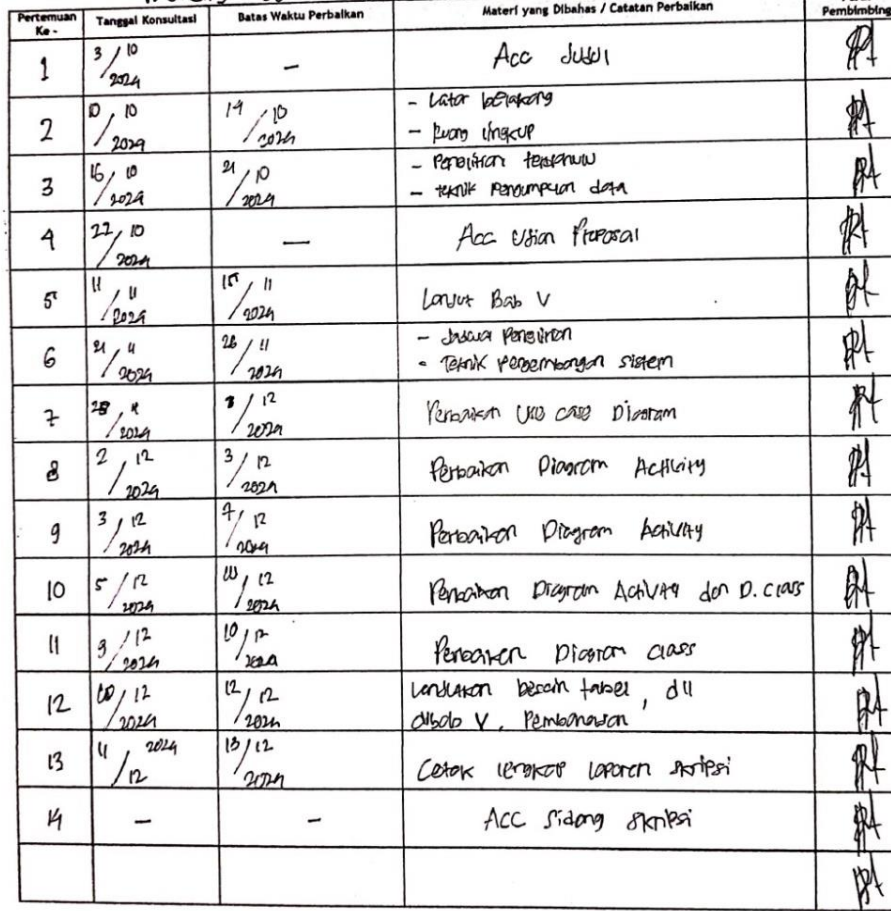 Pertemuan Ke - Tanggal Konsultasi Batas Waktu Perbaikan Materi yang Dibahas / Catatan Perbaikan Pembimbing
1 3/10 2024 — Acc Judul
2 10/10 2024 14/10 2024 - Latar belakang
- Ruang lingkup
3 16/10 2024 21/10 2024 - Penelitian terdahulu
- teknik Pengumpulan data
4 22/10 2024 — Acc Ujian Proposal
5 11/11 2024 15/11 2024 Lanjut Bab V
6 21/11 2024 26/11 2024 - Jadwal Penelitian
- Teknik Pengembangan sistem
7 28/11 2024 /12 2024 Perbaikan Use case Diagram
8 2/12 2024 3/12 2024 Perbaikan Diagram Activity
9 3/12 2024 7/12 2024 Perbaikan Diagram Activity
10 5/12 2024 10/12 2024 Perbaikan Diagram Activity dan D. Class
11 9/12 2024 10/12 2024 Perbaikan Diagram class
12 10/12 2024 12/12 2024 Lanjutkan desain tabel, dll
dibab V, Pembahasan
13 11/12 2024 13/12 2024 Cetak lengkap laporan skripsi
14 — — Acc Sidang Skripsi